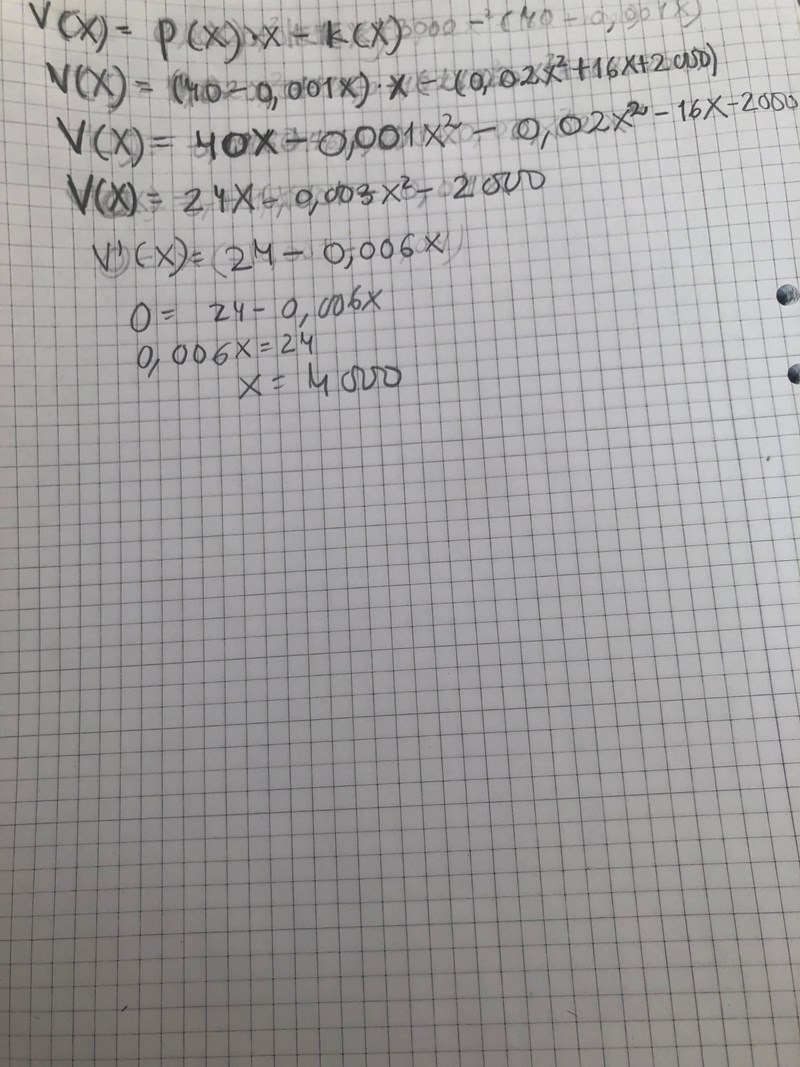 V(X) = P(X)·X - K(X)
V(X) = (40-0,001X)·X - (0,02X²+16X+2000)
V(X) = 40X - 0,001X² - 0,02X² - 16X - 2000
V(X) = 24X - 0,003X² - 2000
V'(X) = (24 - 0,006X)
0 = 24 - 0,006X
0,006X = 24
X = 4000